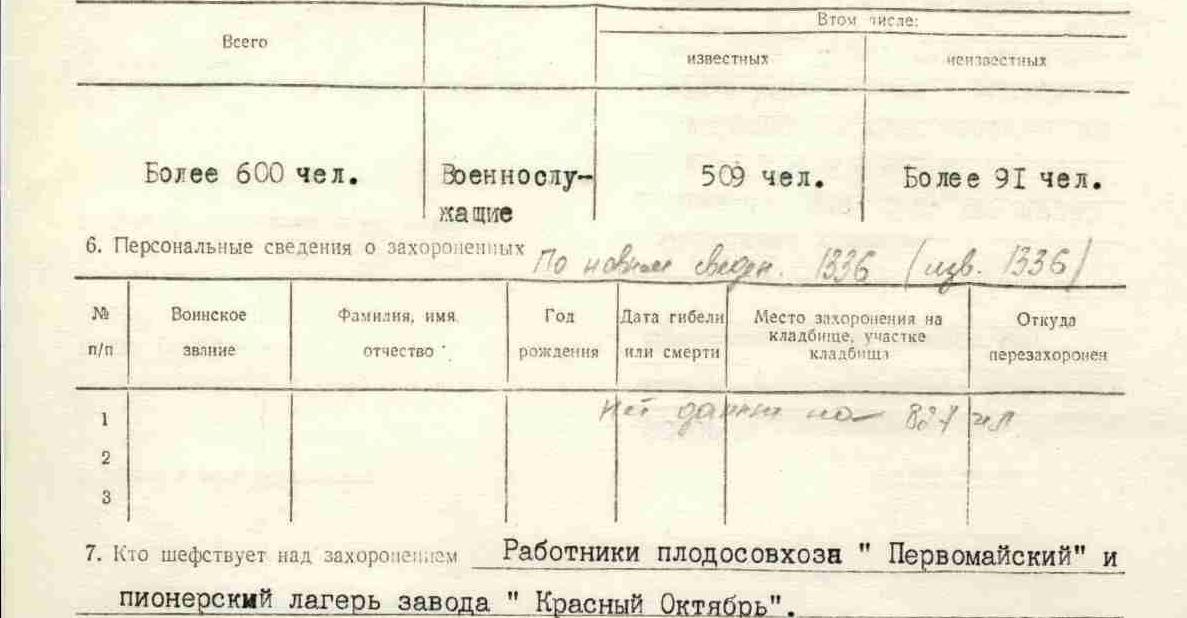 Втом числе:
Всего
известных
неизвестных
Более 600 чел.
Военнослу-
жащие
509 чел.
Более 9I чел.
6. Персональные сведения о захороненных
По новым сведен. 1336 (изв. 1336)
№
п/п
Воинское
звание
Фамилия, имя.
отчество
Год
рождения
Дата гибели
или смерти
Место захоронения на
кладбище, участке
кладбища
Откуда
перезахоронен
1
Нет данных на чел
2
3
7. Кто шефствует над захоронением Работники плодосовхоза " Первомайский" и
пионерский лагерь завода " Красный Октябрь".